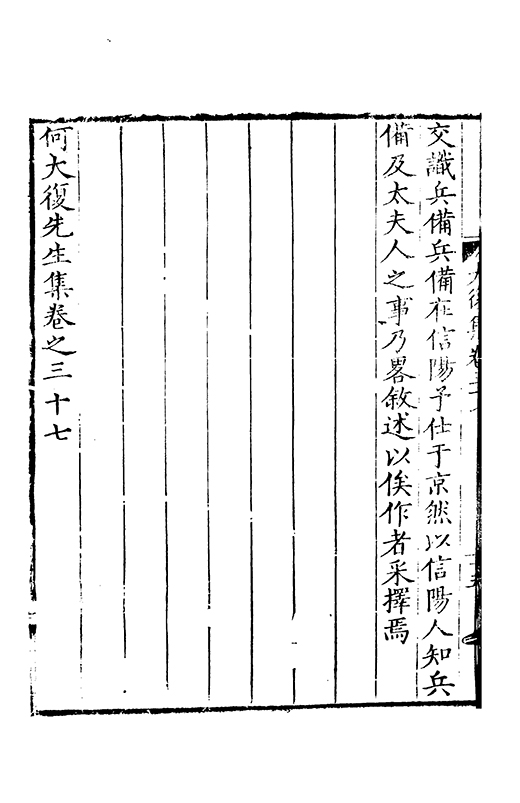 交識兵備兵備在信陽予仕于京然以信陽人知兵
備及太夫人之事乃畧敘述以俟作者采擇焉
何大復先生集卷之三十七